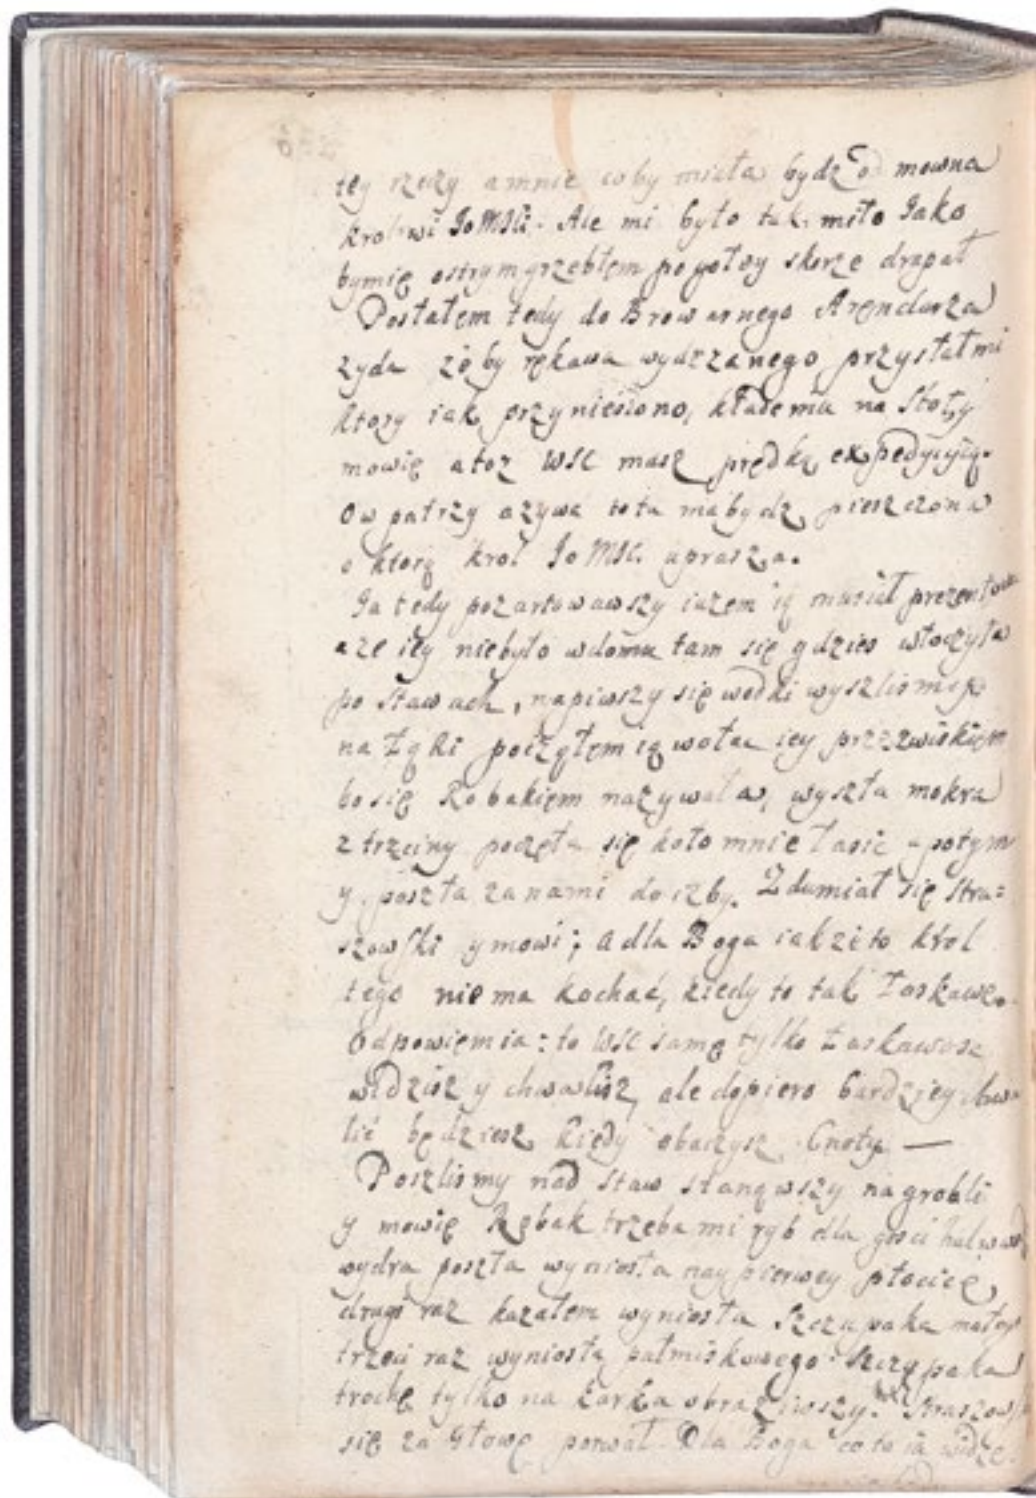 tey rzeczy a mnie coby miała bydz od mowna
krolowi Jo MSCi. Ale mi było tak miło Jako
bymię ostrym grzebłem po gołey skorze drapał
Posłałem tedy do Browarnego Arendarza
zyda zeby rękawa wydrzanego przysłał mi
ktory iak przyniesiono, kładę mu na Stoł y
mowię a toz WSC masz prędką expedycyią.
Ow patrzy a zywa to tu ma bydz pieszczona
o ktorą krol Jo MSC. uprasza.
Ja tedy pozartowawszy iuzem ią musiał prezentowac
a ze iey niebyło w domu tam się gdzies włoczyła
po stawach, napiwszy się wodki wyszlismy
na Łąki począłem ią wołac iey przezwiskiem
bo się Robakiem nazywała, wyszła mokra
z trzciny poczęła się koło mnie łasic a potym
y poszła za nami do izby. Zdumiał się Stra=
szowski y mowi; a dla Boga iakze to krol
tego nie ma kochać, kiedy to tak Łaskawe.
Odpowiem ia: to WSC samę tylko Łaskawosc
widzisz y chwalisz, ale dopiero bardziey chwa-
lić będziesz kiedy obaczysz Cnoty —
Poszlismy nad staw stanąwszy na grobli
y mowię Robak trzeba mi ryb dla gosci hul w wodę
wydra poszła wyniosła naypierwey płocicę,
drugi raz kazałem wyniosła Szczupaka małego
trzeci raz wyniosła połmiskowego Szczupaka
trochę tylko na karku obraziwszy. Straszowski
się za głowę porwał. Dla Boga co to ia widzę.